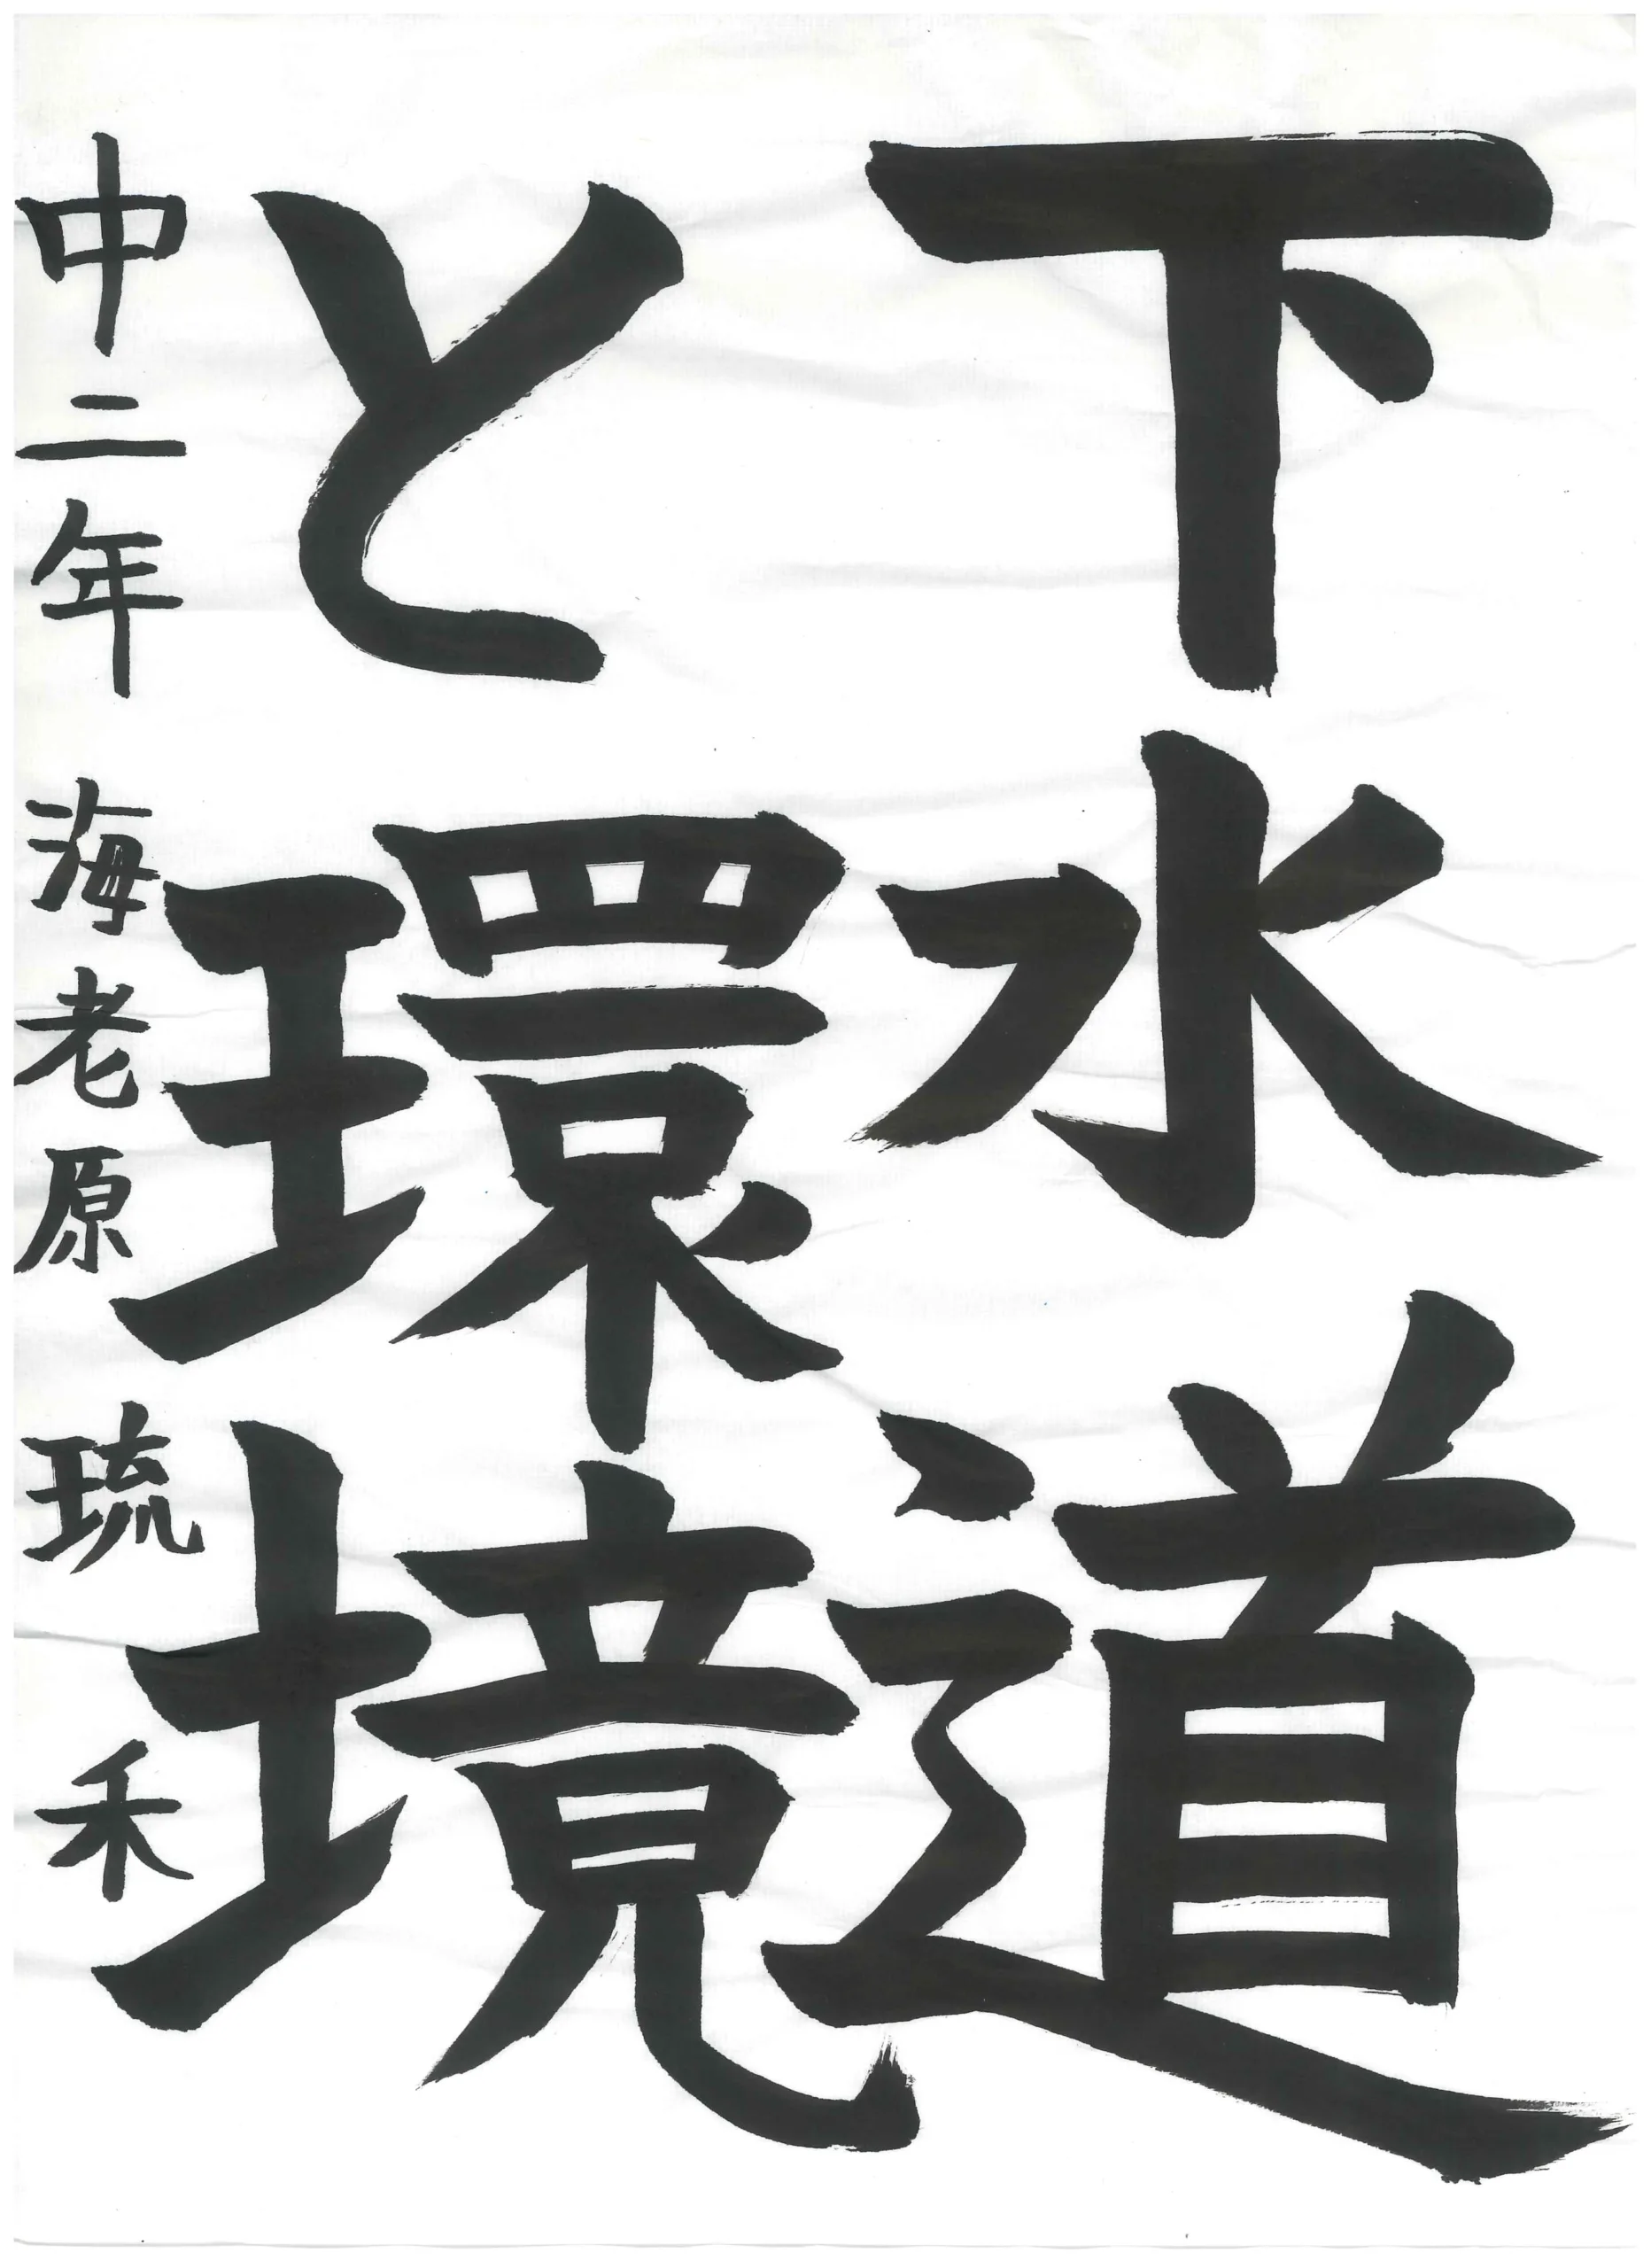 下水道
と環境
中二年 海老原 琉禾